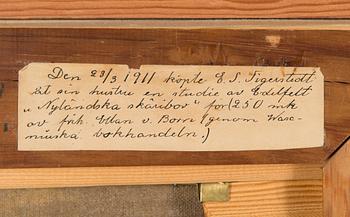 Den 23/3 1911 köpte E. S. Tigerstedt
åt sin hustru en studie av Edelfelt
"Nyländska skäribor" för (250 mk
av frk. Ellan v. Born (genom Wase-
niuska bokhandeln.)